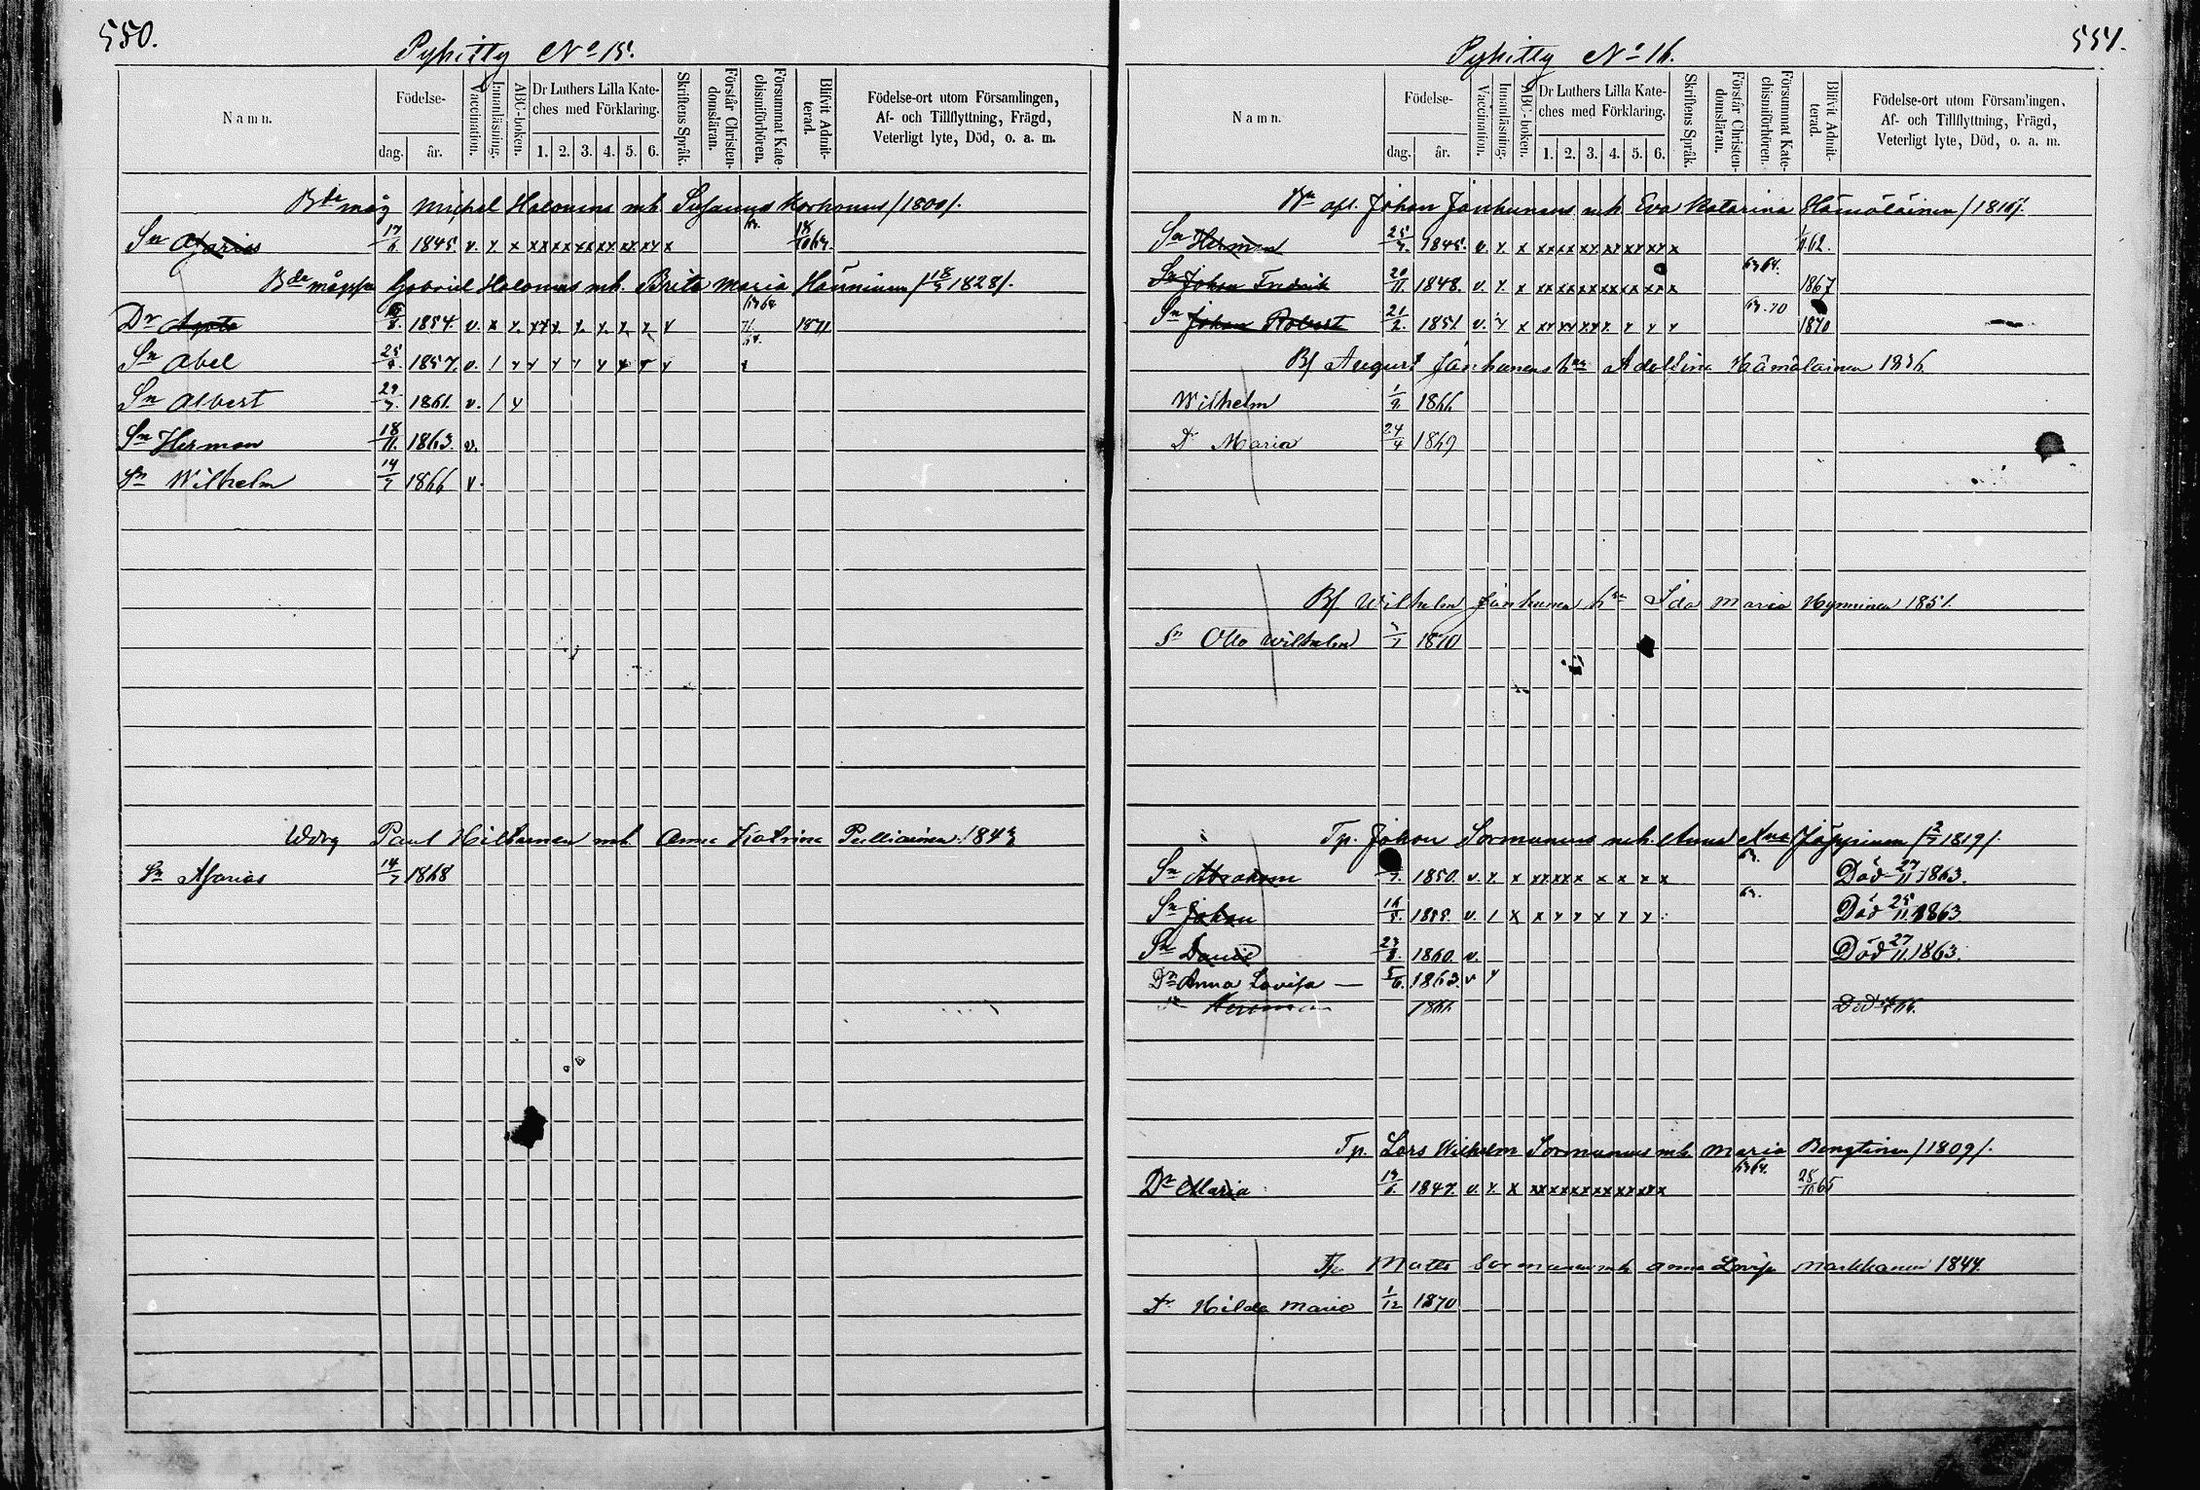 550.
Pyhitty No 15.
Namn.
Födelse-
dag. år.
Vaccination.
Innanläsning.
ABC-boken.
Dr Luthers Lilla Kate-
ches med Förklaring.
1. 2. 3. 4. 5. 6.
Skriftens Språk.
Förstår Christen-
domsläran.
Försummat Kate-
chismiförhören.
Blifvit Admit-
terad.
Födelse-ort utom Församlingen,
Af- och Tillflyttning, Frägd,
Veterligt lyte, Död, o. a. m.
Michel Halonens mh. Susanna Korhonens /1800/.
Sn Asarias 17/6 1845. v. x x xx xx xx xx xx xx x
Gabriel Halonens mh. Brita Maria 18/5 1828/.
Dr Agata 1854. v. x x. xx x. x. x. x. x. x 1871
Sn Abel 1857. v. / x x x x x x x x x
Sn Albert 1861. v. / x
Sn Herman 18/11. 1863. v.
Sn Wilhelm 14/7 1866 v.
Paul mh. Anna Katrina 1843
Sn Asarias 14/7 1868
551.
Pyhitty No 16.
Namn.
Födelse-
dag. år.
Vaccination.
Innanläsning.
ABC-boken.
Dr Luthers Lilla Kate-
ches med Förklaring.
1. 2. 3. 4. 5. 6.
Skriftens Språk.
Förstår Christen-
domsläran.
Försummat Kate-
chismiförhören.
Blifvit Admit-
terad.
Födelse-ort utom Församlingen,
Af- och Tillflyttning, Frägd,
Veterligt lyte, Död, o. a. m.
Johan Janhunens mh Eva Katarina Hämäläinen
Sn Herman 1845. v. x x xx xx xx xx xx xx x
Sn Johan Fredrik 20/11. 1848. v. x x xx xx xx xx xx x x 63 64. 1867
Sn Johan Robert 21/2. 1851 v. x x xx xx xx x x x x 1870
Bf August Janhunens hu Adolfina Hämäläinen 1836
Wilhelm 1/9. 1866
Dr Maria 24/4 1869
Bf Wilhelm Janhunen hu Ida Maria Hynninen 1851.
Sn Otto Wilhelm 1870
Tp. Johan Sormunens mh. Anna Jäppinen 1819/.
Sn Abraham 1850. v. x. x xx xx x x x x x 63. Död 27/11 1863.
Sn Johan 1855. v. / x x x x x x x 63. Död 25/11. 1863
Sn Daniel 1860. v. Död 27/11. 1863.
Dr Anna Lovisa 5/6. 1863. v x
Sn Herman 1866 Död
Tp. Lars Wilhelm Sormunens mh. Maria Bengtinen /1809/.
Dr Maria 1847. v. x. x xx xx xx xx xx xx x 63 64. 65
Matts Sormunen mh Anna Lovisa Markkanen 1844.
Dr Hilda Maria 1/12 1870